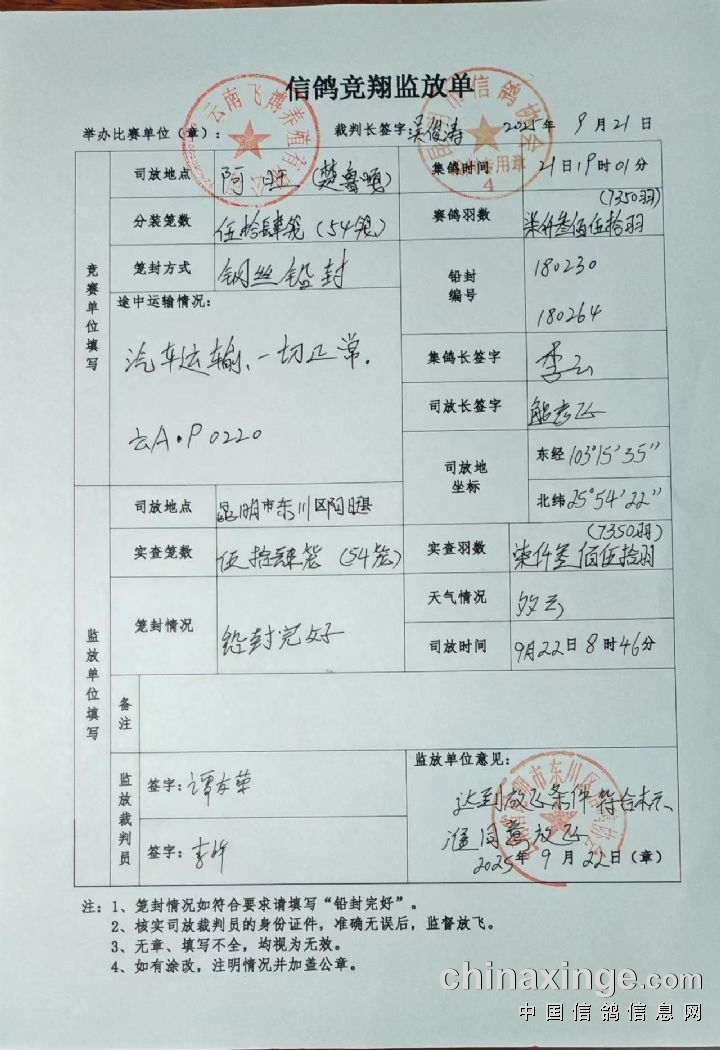 信鸽竞翔监放单
举办比赛单位（章）： 裁判长签字 吴俊涛 2025年 9月21日
云南飞博养殖有限公司
信鸽协会
专用章
4
竞赛单位填写
司放地点 阿旺（楚鲁噴） 集鸽时间 21日19时01分
分装笼数 伍拾肆笼（54笼） 赛鸽羽数 柒仟叁佰伍拾羽（7350羽）
笼封方式 钢丝铅封 铅封编号 180230
180264
途中运输情况：
汽车运输、一切正常.
云A·P0220
集鸽长签字 李云
司放长签字
司放地坐标 东经103°15′35″
北纬25°54′22″
监放单位填写
司放地点 昆明市东川区阿旺
实查笼数 伍拾肆笼（54笼） 实查羽数 柒仟叁佰伍拾羽（7350羽）
笼封情况 铅封完好 天气情况 多云
司放时间 9月22日8时46分
备注
监放裁判员
签字：谭友荣
签字：李
监放单位意见：
达到放飞条件符合标示
准同意放飞
2025年9月22日（章）
昆明市东川区信鸽协会
注：1、笼封情况如符合要求请填写“铅封完好”。
2、核实司放裁判员的身份证件，准确无误后，监督放飞。
3、无章、填写不全，均视为无效。
4、如有涂改，注明情况并加盖公章。
chinaxinge.com
中国信鸽信息网